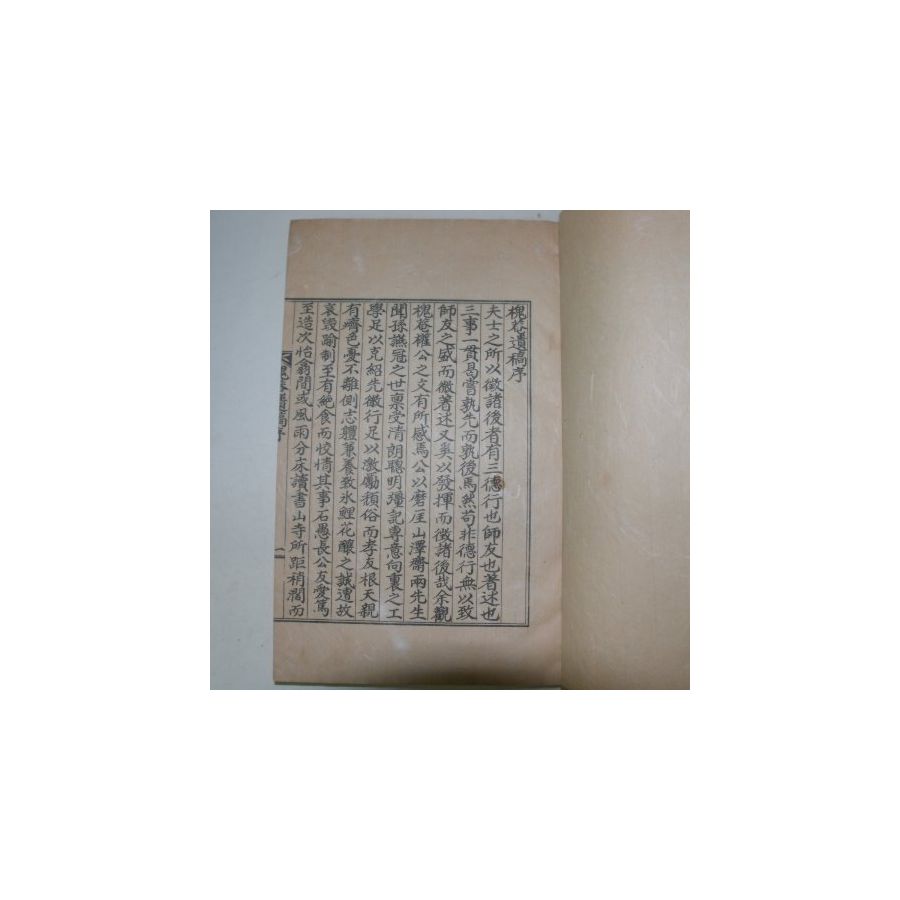 槐菴遺稿序
夫士之所以徵諸後者有三德行也師友也著述也
三事一貫曷嘗孰先而孰後焉然苟非德行無以致
師友之盛而微著述又奚以發揮而徵諸後哉余觀
槐菴權公之文有所感焉公以磨厓山澤齋兩先生
聞孫讌冠之世稟受清朗聰明彊記專意向裏之工
學足以克紹先徽行足以激勵頹俗而孝友根天親
有癠色憂不離側志軆兼養致氷鯉花釀之誠遭故
哀毀踰制至有絶食而恔情其事石愚長公友愛篤
至造次怡翕間或風雨分床讀書山寺所距稍濶而
槐菴遺稿序
一